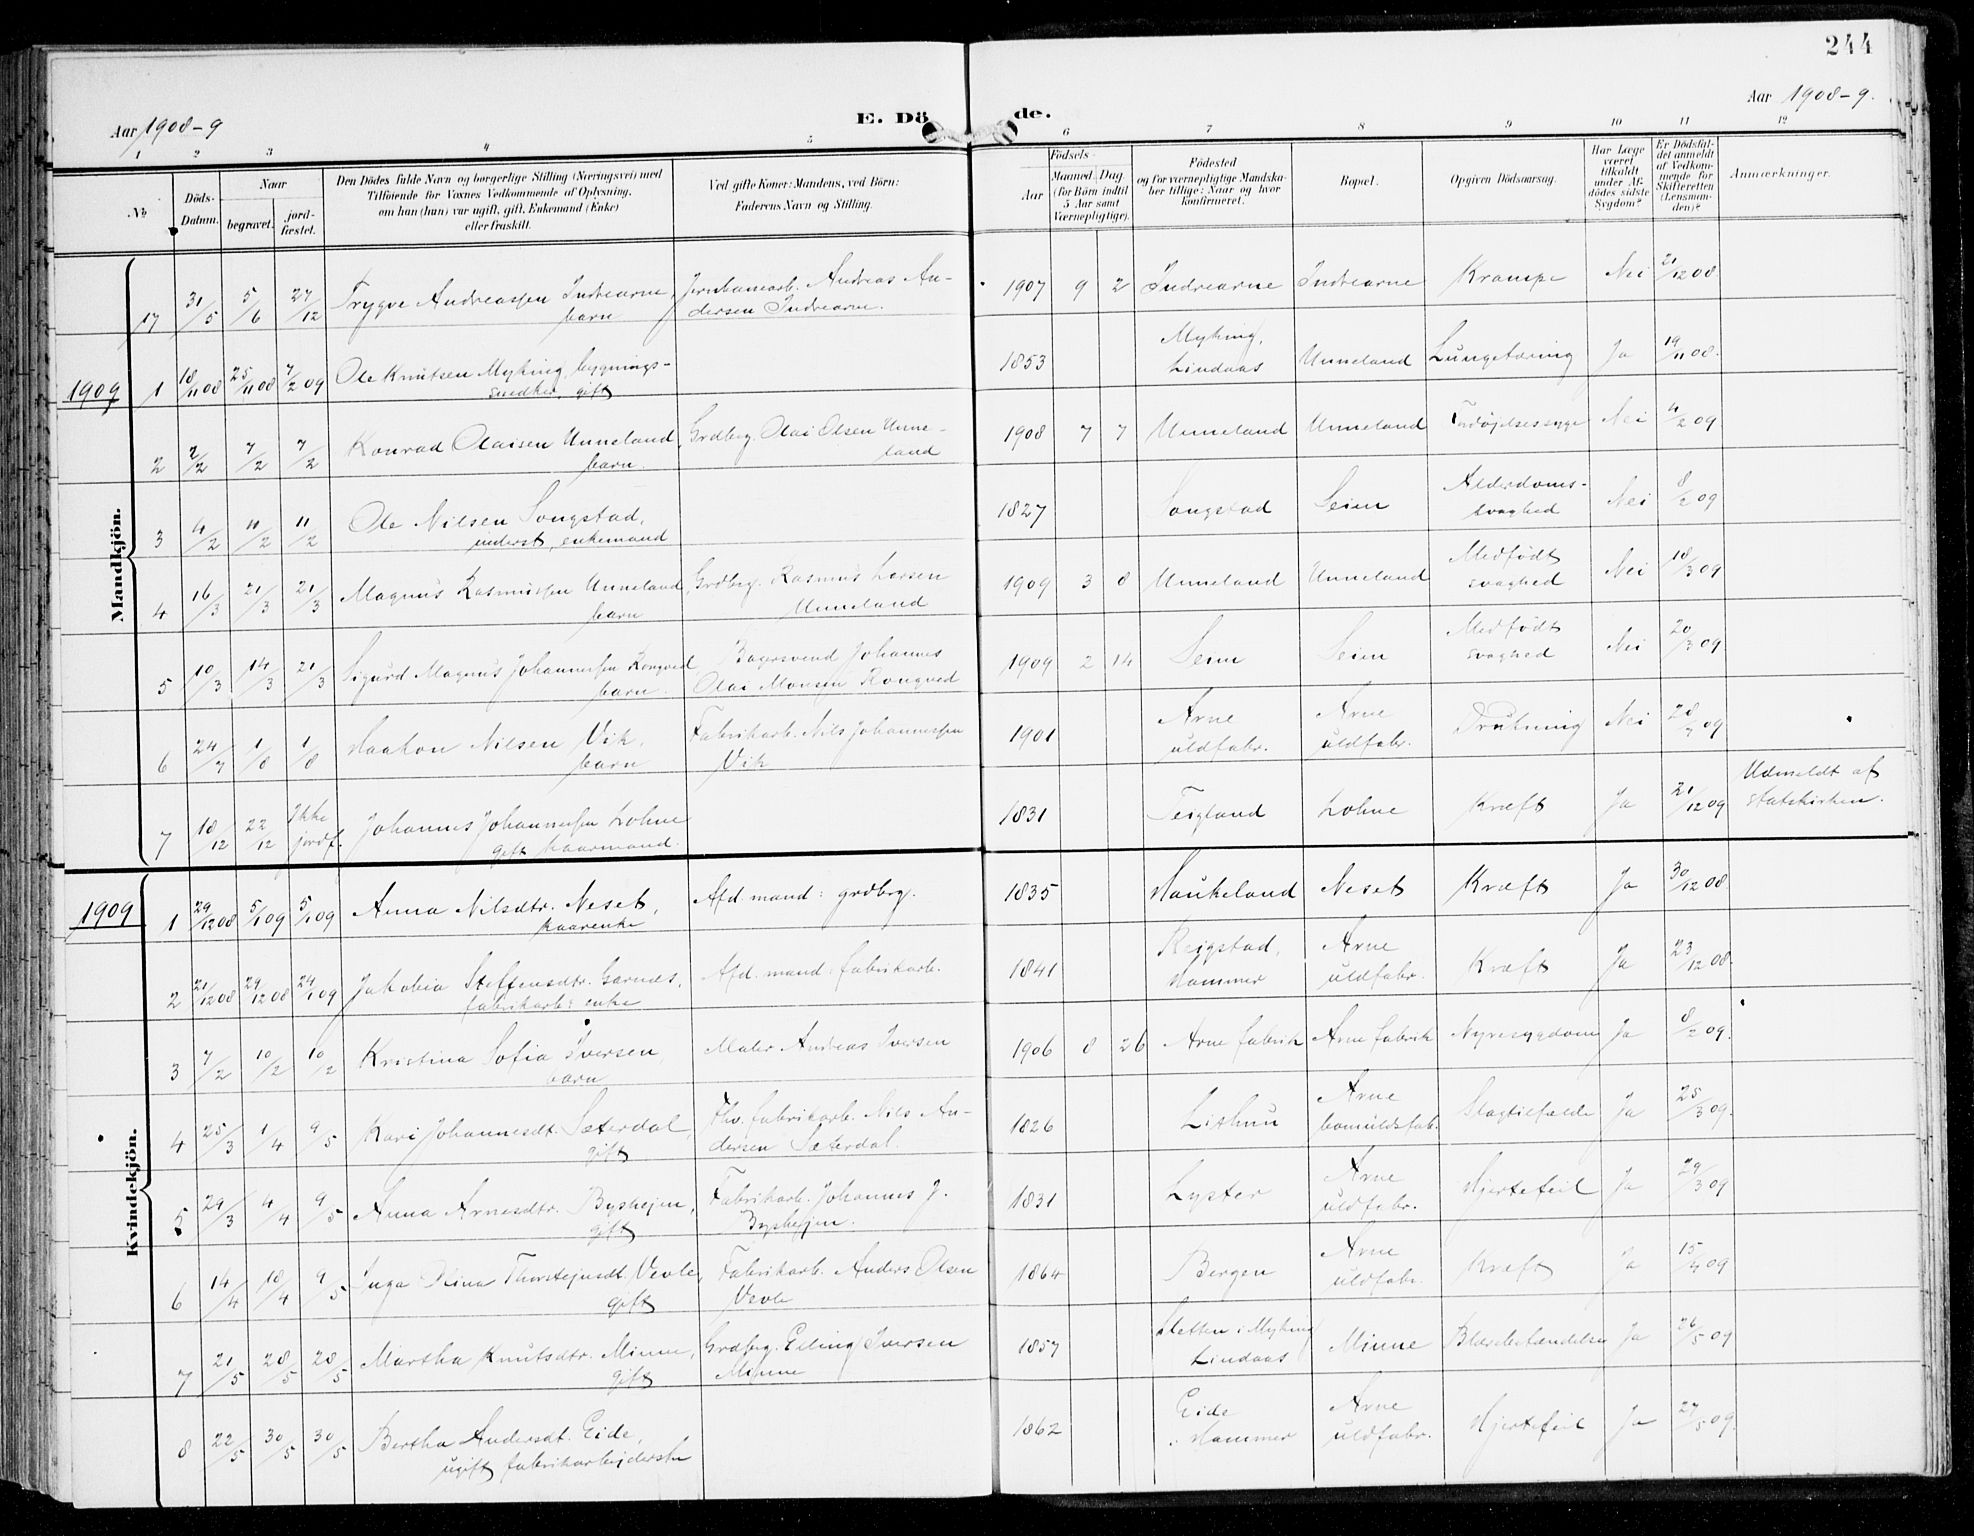 244
Aar 1908-9
E. Dö
de.
Aar 1908-9.
1 2 3 4 5 6 7 8 9 10 11 12
№
Döds-Datum.
Naar
begravet.
jord-fæstet.
Den Dödes fulde Navn og borgerlige Stilling (Næringsvei) med
Tilförende for Voxnes Vedkommende af Oplysning,
om han (hun) var ugift, gift, Enkemand (Enke)
eller fraskilt.
Ved gifte Koner: Mandens, ved Börn:
Faderens Navn og Stilling.
Födsels-
Aar
Maaned. Dag.
(for Börn indtil
5 Aar samt
Værnepligtige).
Födested
og for værnepligtige Mandska-
ber tillige: Naar og hvor
konfirmeret.
Bopæl.
Opgiven Dödsaarsag.
Har Læge
været
tilkaldt
under Af-
dödes sidste
Sygdom?
Er Dödsfal-
det anmeldt
af Vedkom-
mende for
Skifteretten
(Lensman-
den)?
Anmærkninger.
Mandkjön.
17 31/5 5/6 27/12 Trygve Andreassen Indrearne, Jernbanearb. Andreas An- 1907 9 2 Indrearne Indrearne Krampe Nei 21/12 08
barn dersen Indrearne.
1909 1 18/11 08 25/11 08 7/2 09 Ole Knutsen Myking, bygnings- 1853 Myking, Unneland Lungetæring Ja 19/11 08.
snedker, gift Lindaas
2 2/2 7/2 7/2 Konrad Olaisen Unneland, Grdbrg. Olai Olsen Unne- 1908 7 7 Unneland Unneland Nei 4/2 09
barn. land
3 4/2 11/2 11/2 Ole Nilsen Songstad, 1827 Songstad Seim Alderdoms- Nei 8/2 09
inderst, enkemand svaghed
4 16/3 21/3 21/3 Magnus Rasmussen Unneland, Grdbrg. Rasmus Larsen 1909 3 8 Unneland Unneland Medfödt Nei 18/3 09
barn Unneland svaghed
5 10/3 14/3 21/3 Sigurd Magnus Johannessen Rongved, Bagersvend Johannes 1909 2 14 Seim Seim Medfödt Nei 20/3 09
barn. Olai Monsen Rongved svaghed
6 24/7 1/8 1/8 Haakon Nilsen Vik, Fabrikarb. Nils Johannessen 1901 Arne Arne Drukning Nei 28/7 09
barn Vik uldfabr. uldfabr.
7 18/12 22/12 Ikke Johannes Johannessen Lohne 1831 Teigland Lohne Kræft Ja 21/12 09 Udmeldt af
jordf. gift kaarmand. statskirken.
Kvindekjön.
1909 1 29/12 08 5/1 09 5/1 09 Anna Nilsdtr. Neset, Afd. mand: grdbrg. 1835 Haukeland Neset Kræft Ja 30/12 08.
kaarenke
2 21/12 08 29/12 08 24/1 09 Jakobia Steffensdtr. Garnæs, Afd. mand: fabrikarb. 1841 Reigstad, Arne Kræft Ja 23/12 08.
fabrikarb: enke Hammer uldfabr.
3 7/2 10/2 10/2 Kristina Sofia Iversen, Maler Andreas Iversen 1906 8 26 Arne fabrik Arne fabrik Nyresygdom Ja 8/2 09.
barn
4 25/3 1/4 9/5 Kari Johannesdt. Sæterdal, Fhv. fabrikarb. Nils An- 1826 Arne Slagtilfælde Ja 25/3 09.
gift dersen Sæterdal. bomuldsfab.
5 29/3 4/4 9/5 Anna Arnesdtr. Byshejen, Fabrikarb. Johannes J. 1831 Lyster Arne Hjertefeil Ja 29/3 09
gift Byshejen. uldfabr.
6 14/4 18/4 9/5 Inga Olina Thorstejnsdt. Vevle, Fabrikarb. Anders Olsen 1864 Bergen Arne Kræft Ja 15/4 09
gift Vevle uldfabr.
7 21/5 28/5 28/5 Martha Knutsdtr. Minne, Grdbrg. Elling Iversen 1857 Sletten i Myking Minne Blærebetændelse Ja 26/5 09
gift Minne Lindaas
8 22/5 30/5 30/5 Bertha Andersdt. Eide, 1862 Eide Arne Hjertefeil Ja 27/5 09.
ugift fabrikarbejderske Hammer uldfabr.